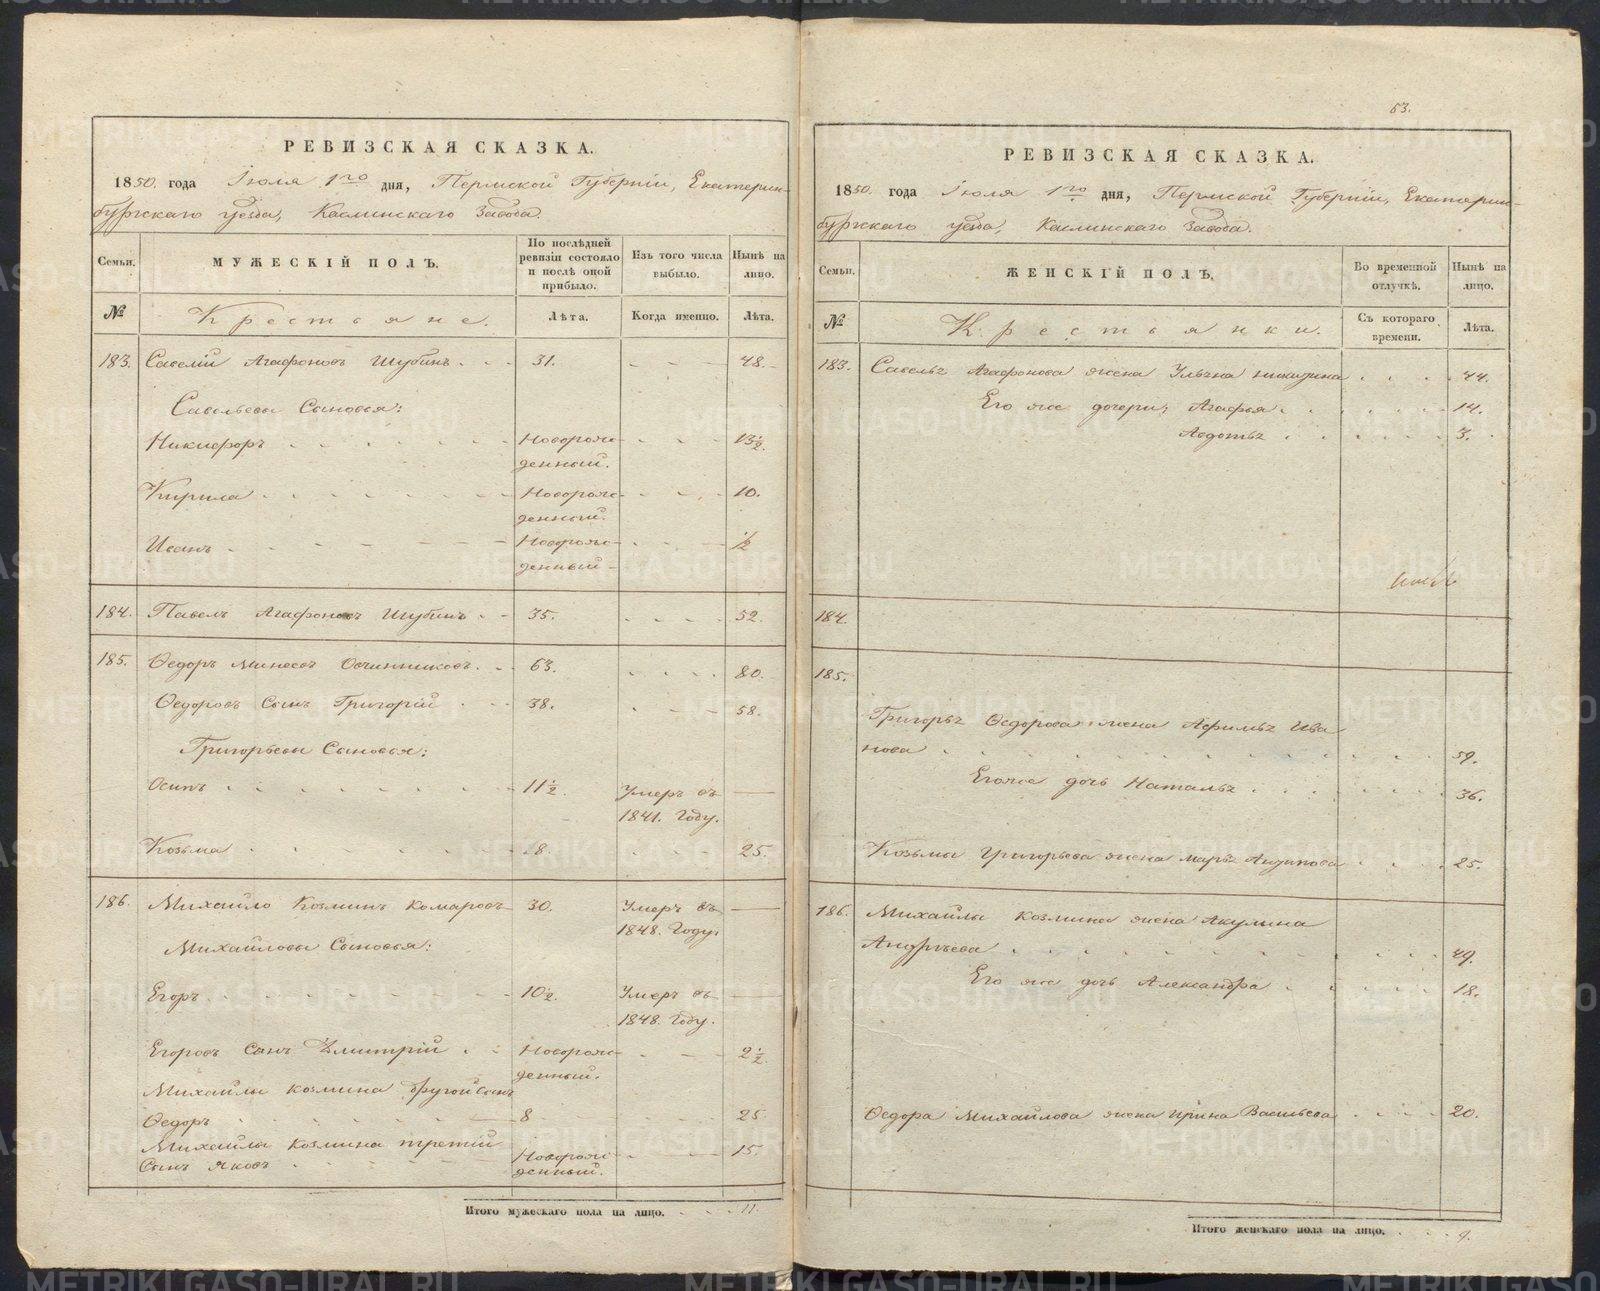 РЕВИЗСКАЯ СКАЗКА.
1850. года Іюля 1го дня, Пермской Губерніи, Екатерин-
бургскаго уезда, Каслинскаго Завода.
Семьи. МУЖЕСКІЙ ПОЛЪ. По послѣдней ревизіи состояло и послѣ оной прибыло. Изъ того числа выбыло. Нынѣ на лицо.
№ Крестьяне. Лѣта. Когда именно. Лѣта.
183. Савелій Агафоновъ Шубинъ 31. 48.
Савельевы Сыновья:
Никифоръ Новорож- 13½
денный.
Кирила Новорож- 10.
денный.
Иванъ Новорож- ½
денный
184. Павелъ Агафоновъ Шубинъ 35. 52.
185. Ѳедоръ Минеевъ Овчинниковъ. 63. 80.
Ѳедоровъ Сынъ Григорій 38. 58.
Григорьевы Сыновья:
Осипъ 11½. Умеръ въ
1841. Году.
Козьма 8. 25.
186. Михайло Козминъ Комаровъ 30. Умеръ въ
1848. Году.
Михайловы Сыновья:
Егоръ 10½. Умеръ въ
1848. Году.
Егоровъ Сынъ Дмитрій Новорож- 2½
денный.
Михайлы Козмина другой сынъ
Ѳедоръ 8 25
Михайлы Козмина третій
Сынъ Яковъ Новорож- 15.
денный.
Итого мужескаго пола на лицо. 11.
53.
РЕВИЗСКАЯ СКАЗКА.
1850. года Іюля 1го дня, Пермской Губерніи, Екатерин-
бургскаго уезда, Каслинскаго Завода.
Семьи. ЖЕНСКІЙ ПОЛЪ. Во временной отлучкѣ. Нынѣ на лицо.
№ Крестьянки. Съ котораго времени. Лѣта.
183. Савелья Агафонова жена Ульяна 44.
Его же дочери, Агафья 14.
Авдотья 3.
184.
185.
Григорья Ѳедорова жена Афимья Ива
нова 59.
Его же дочь Наталья 36.
Козьмы Григорьева жена Марья 25.
186. Михайлы Козмина жена Акулина
Андреева 49.
Его же дочь Александра 18.
Ѳедора Михайлова жена Ирина Васильева 20.
Итого женскаго пола на лицо. 9.
METRIKI.GASO-URAL.RU